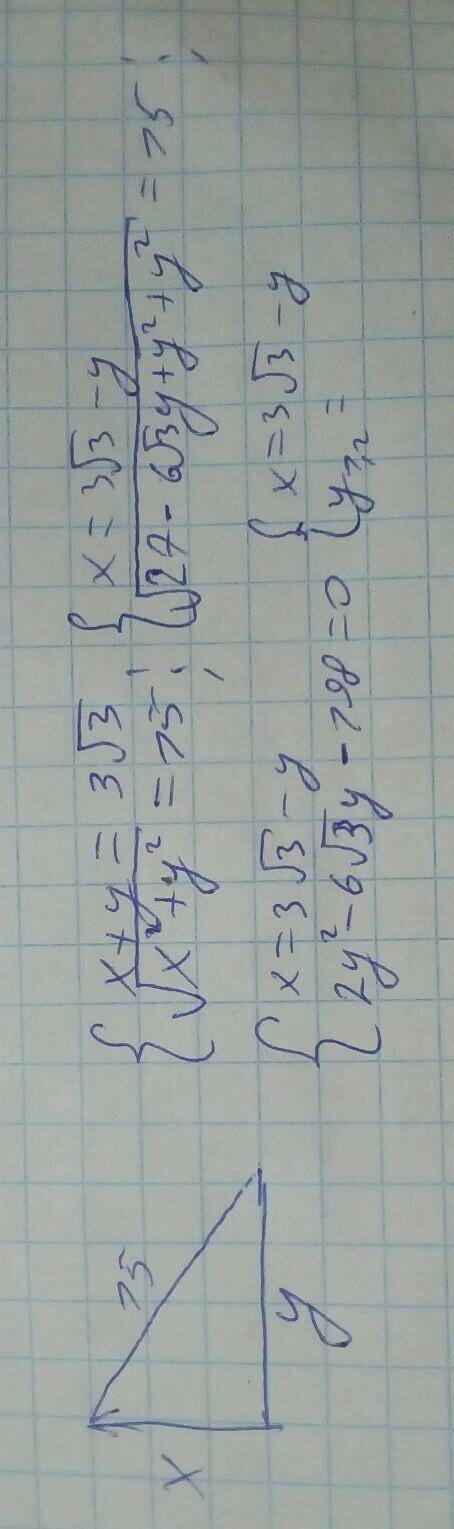 x
15
y
{ x+y = 3√3
√(x²+y²) = 15 ;
{ x = 3√3 - y
√(27 - 6√3y + y² + y²) = 15 ;
{ x = 3√3 - y
2y² - 6√3y - 198 = 0
{ x = 3√3 - y
y₁,₂ =